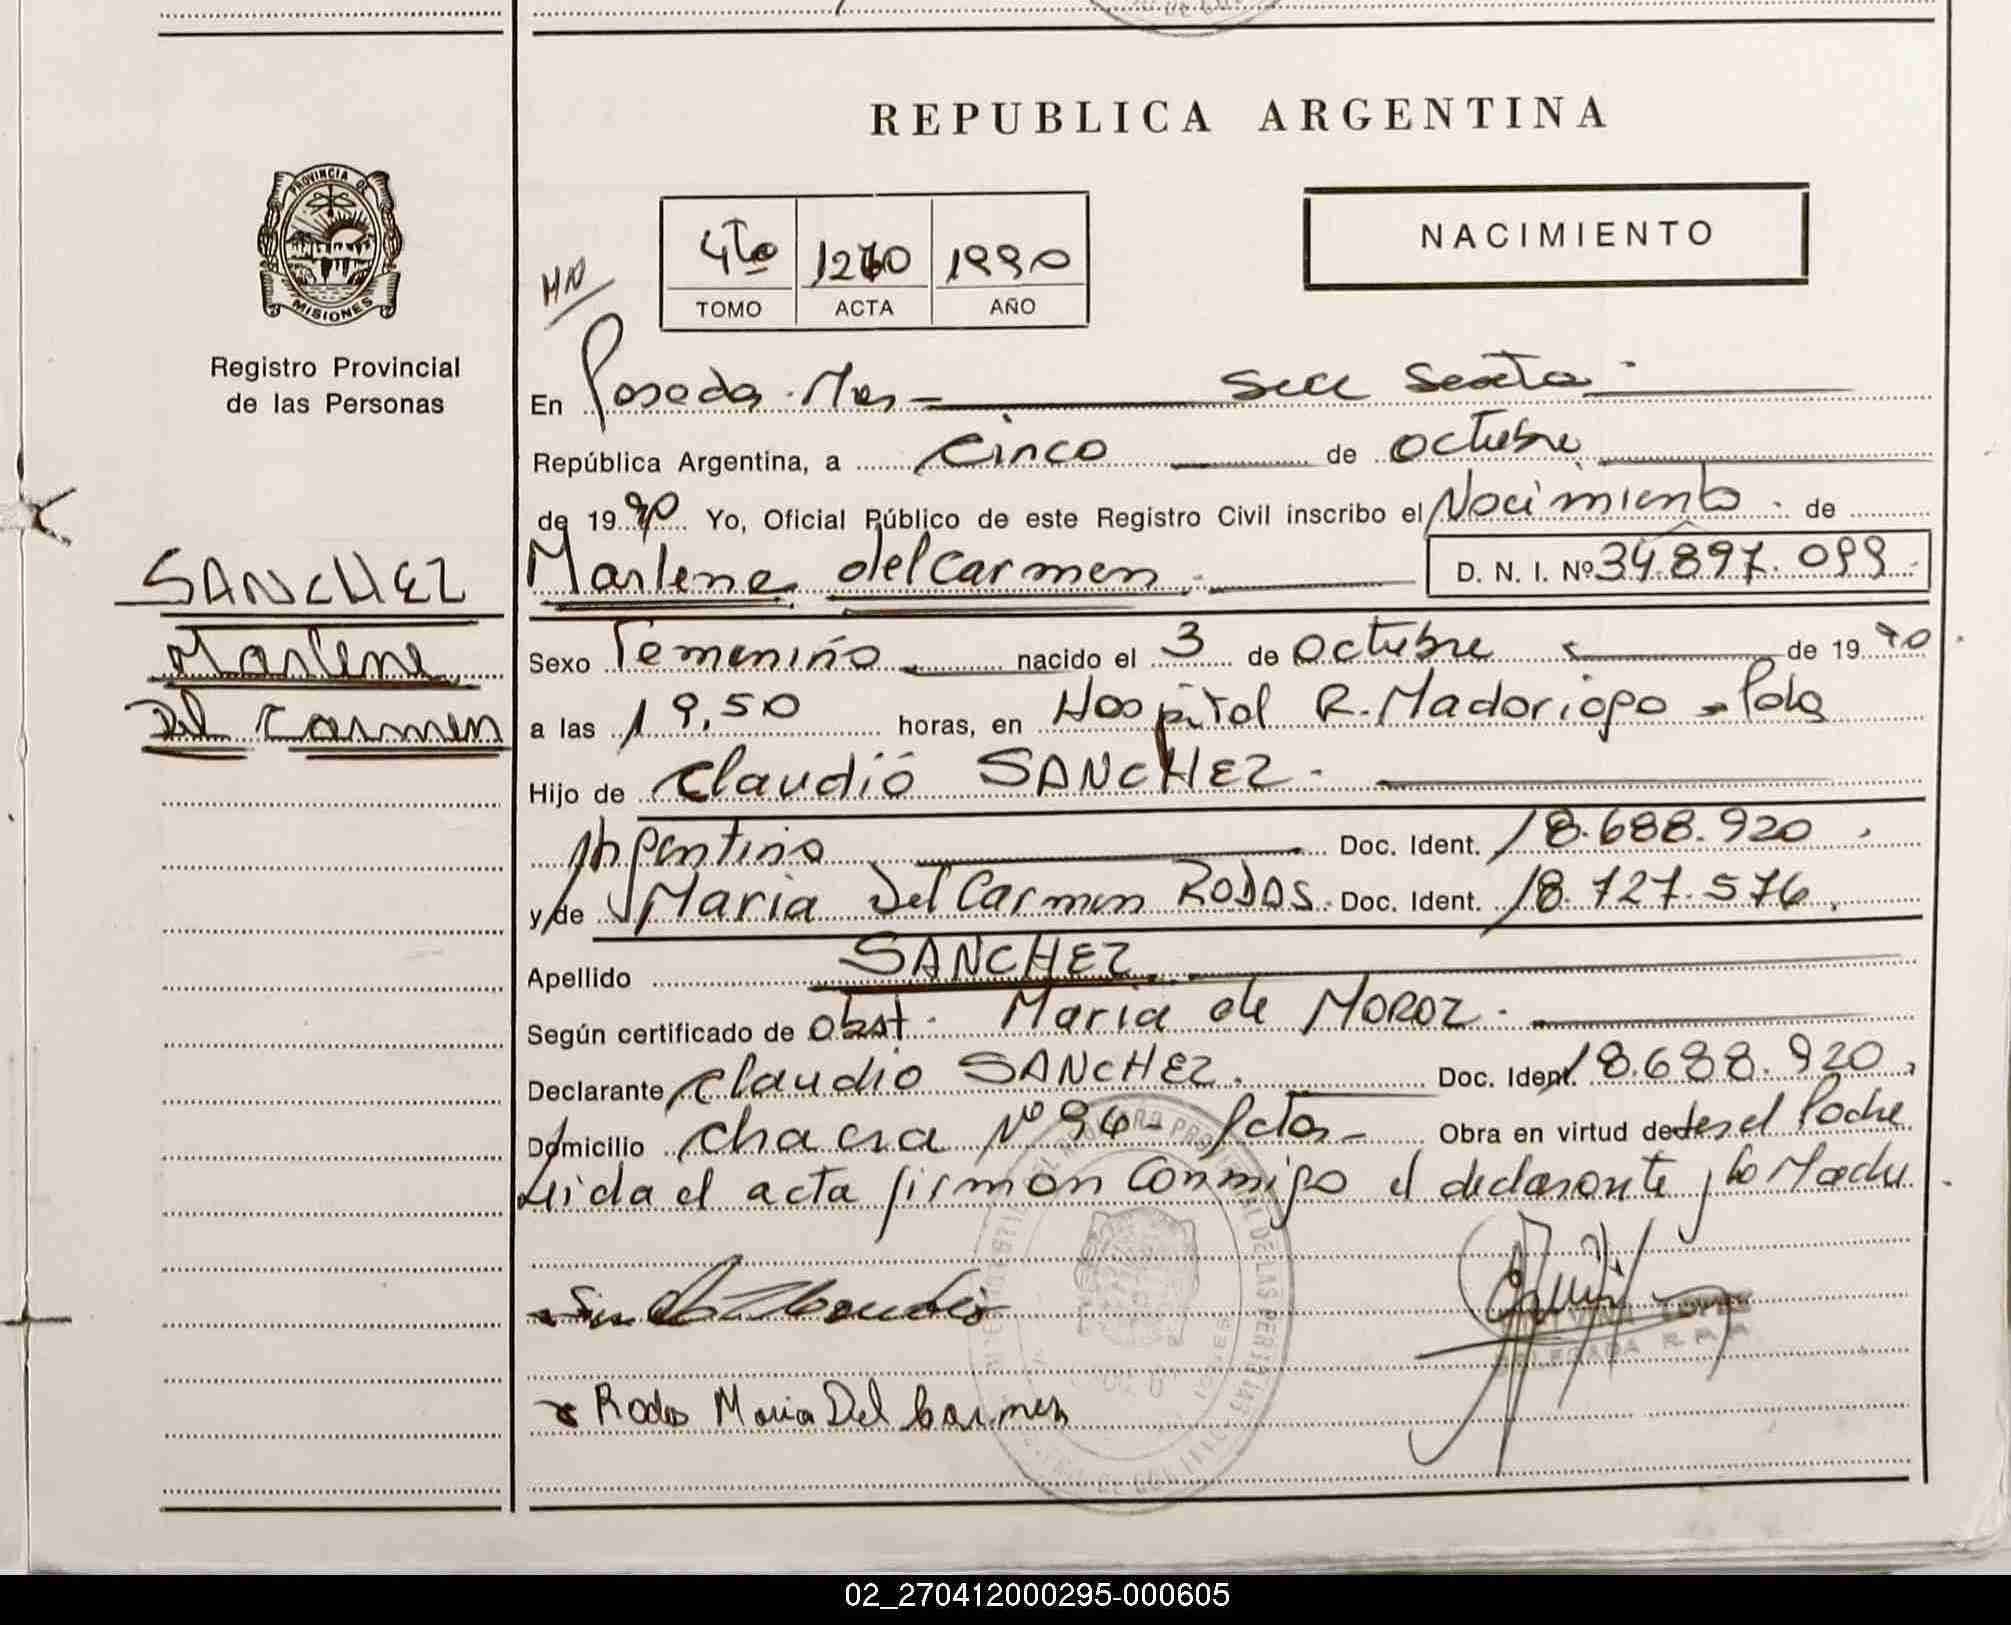 REPUBLICA ARGENTINA
PROVINCIA DE
MISIONES
Registro Provincial
de las Personas
HN
4to 1270 1990
TOMO ACTA AÑO
NACIMIENTO
En Posadas. Mnes - Secc Sexta
República Argentina, a cinco de octubre
de 1990 Yo, Oficial Público de este Registro Civil inscribo el Nacimiento de
SANCHEZ
Marlene
Del Carmen
Marlene del Carmen D. N. I. Nº 34.897.099
Sexo Femenino nacido el 3 de Octubre de 1990
a las 19,50 horas, en Hospital R. Madariaga - Pdas
Hijo de Claudio SANCHEZ.
Argentino Doc. Ident. 18.688.920
y de Maria Del Carmen RODAS. Doc. Ident. 18.727.576
Apellido SANCHEZ
Según certificado de obst. Maria de MOROZ.
Declarante Claudio SANCHEZ. Doc. Ident. 18.688.920
Domicilio Chacra Nº 94 - Pdas - Obra en virtud de ser el Padre
Leida el acta firman conmigo el declarante y la Madre
Rodas Maria Del Carmen
02_270412000295-000605